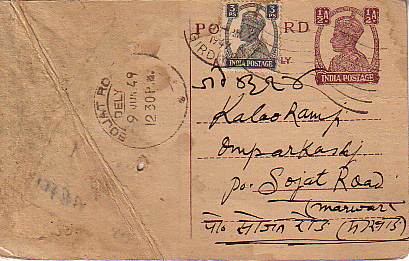 POST CARD
3 PS
½ A
INDIA POSTAGE
INDIA POSTAGE
SOJAT RO
DELY
9 JUN 49
12.30 P.M.
Kalooramji
Omparkashji
Po. Sojat Road
(marwar)
पो० सोजत रोड (मारवाड़)